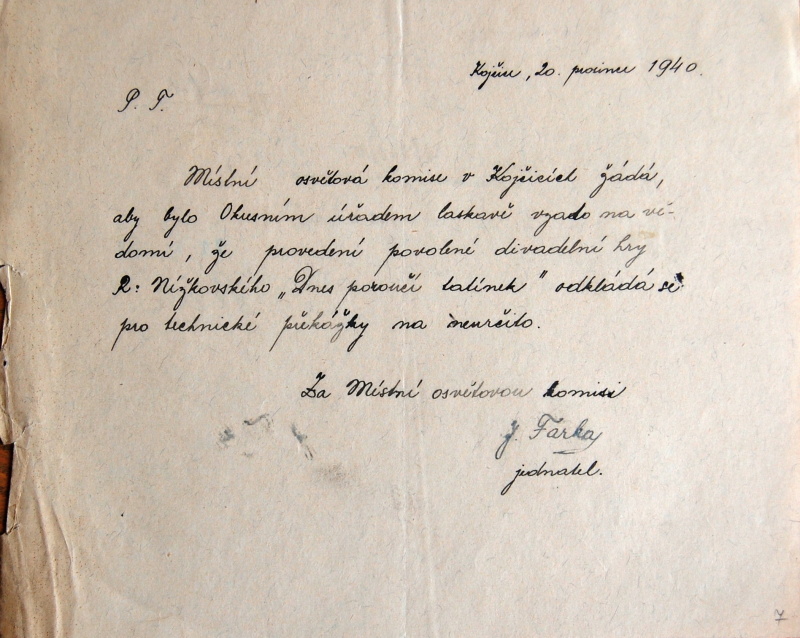 Kojčice, 20. prosince 1940.
P. T.
Místní osvětová komise v Kojčicích žádá,
aby bylo Okresním úřadem laskavě vzato na vě-
domí, že provedení povolené divadelní hry
R: Nížkovského „Dnes poroučí tatínek" odkládá se
pro technické překážky na neurčito.
Za Místní osvětovou komisi
J. Farka
jednatel.
7